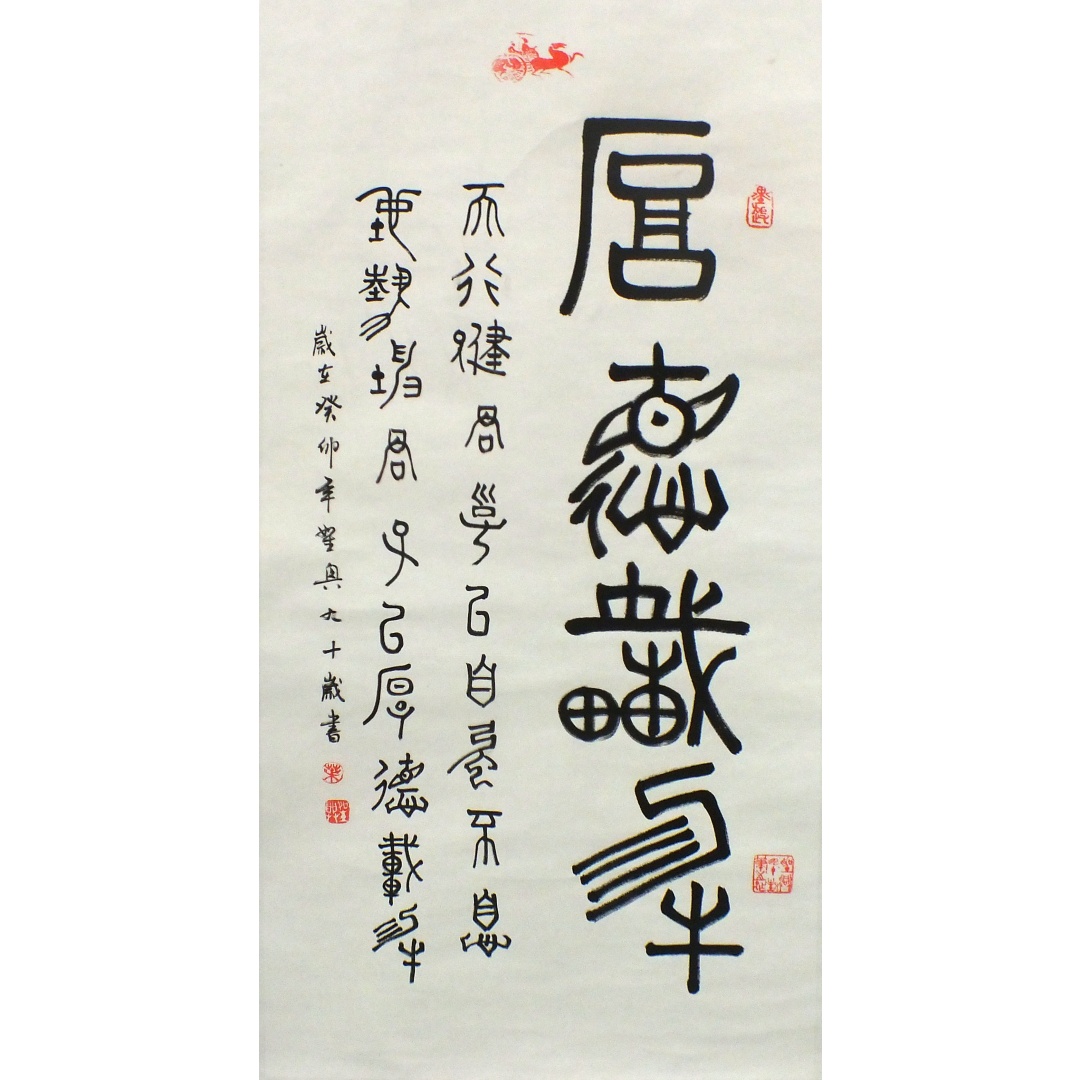 厚德載物
天行健君子以自強不息
地勢坤君子以厚德載物
歲在癸卯年聖興九十歲書